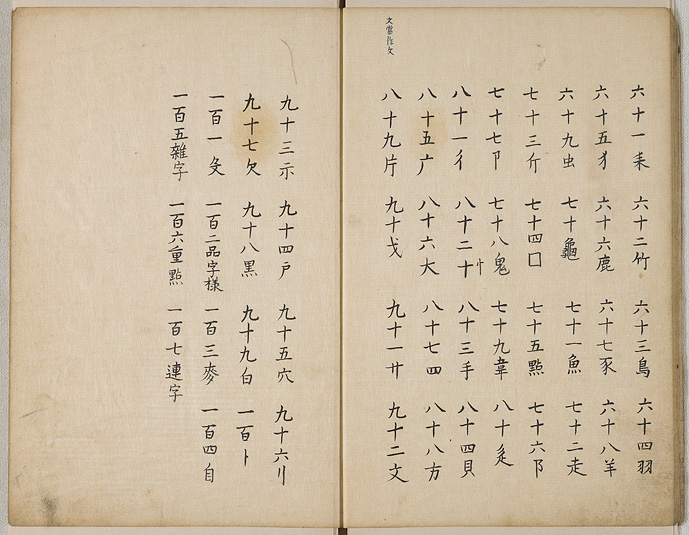 文當作攵
六十一耒 六十二竹 六十三鳥 六十四羽
六十五犭 六十六鹿 六十七豕 六十八羊
六十九虫 七十龜 七十一魚 七十二走
七十三斤 七十四囗 七十五點 七十六阝
七十七卩 七十八鬼 七十九韋 八十辵
八十一彳 八十二十 忄 八十三手 八十四貝
八十五广 八十六大 八十七四 八十八方
八十九片 九十戈 九十一廾 九十二文
九十三示 九十四户 九十五穴 九十六巛
九十七欠 九十八黒 九十九白 一百卜
一百一 一百二品字樣 一百三麥 一百四自
一百五雜字 一百六重點 一百七連字